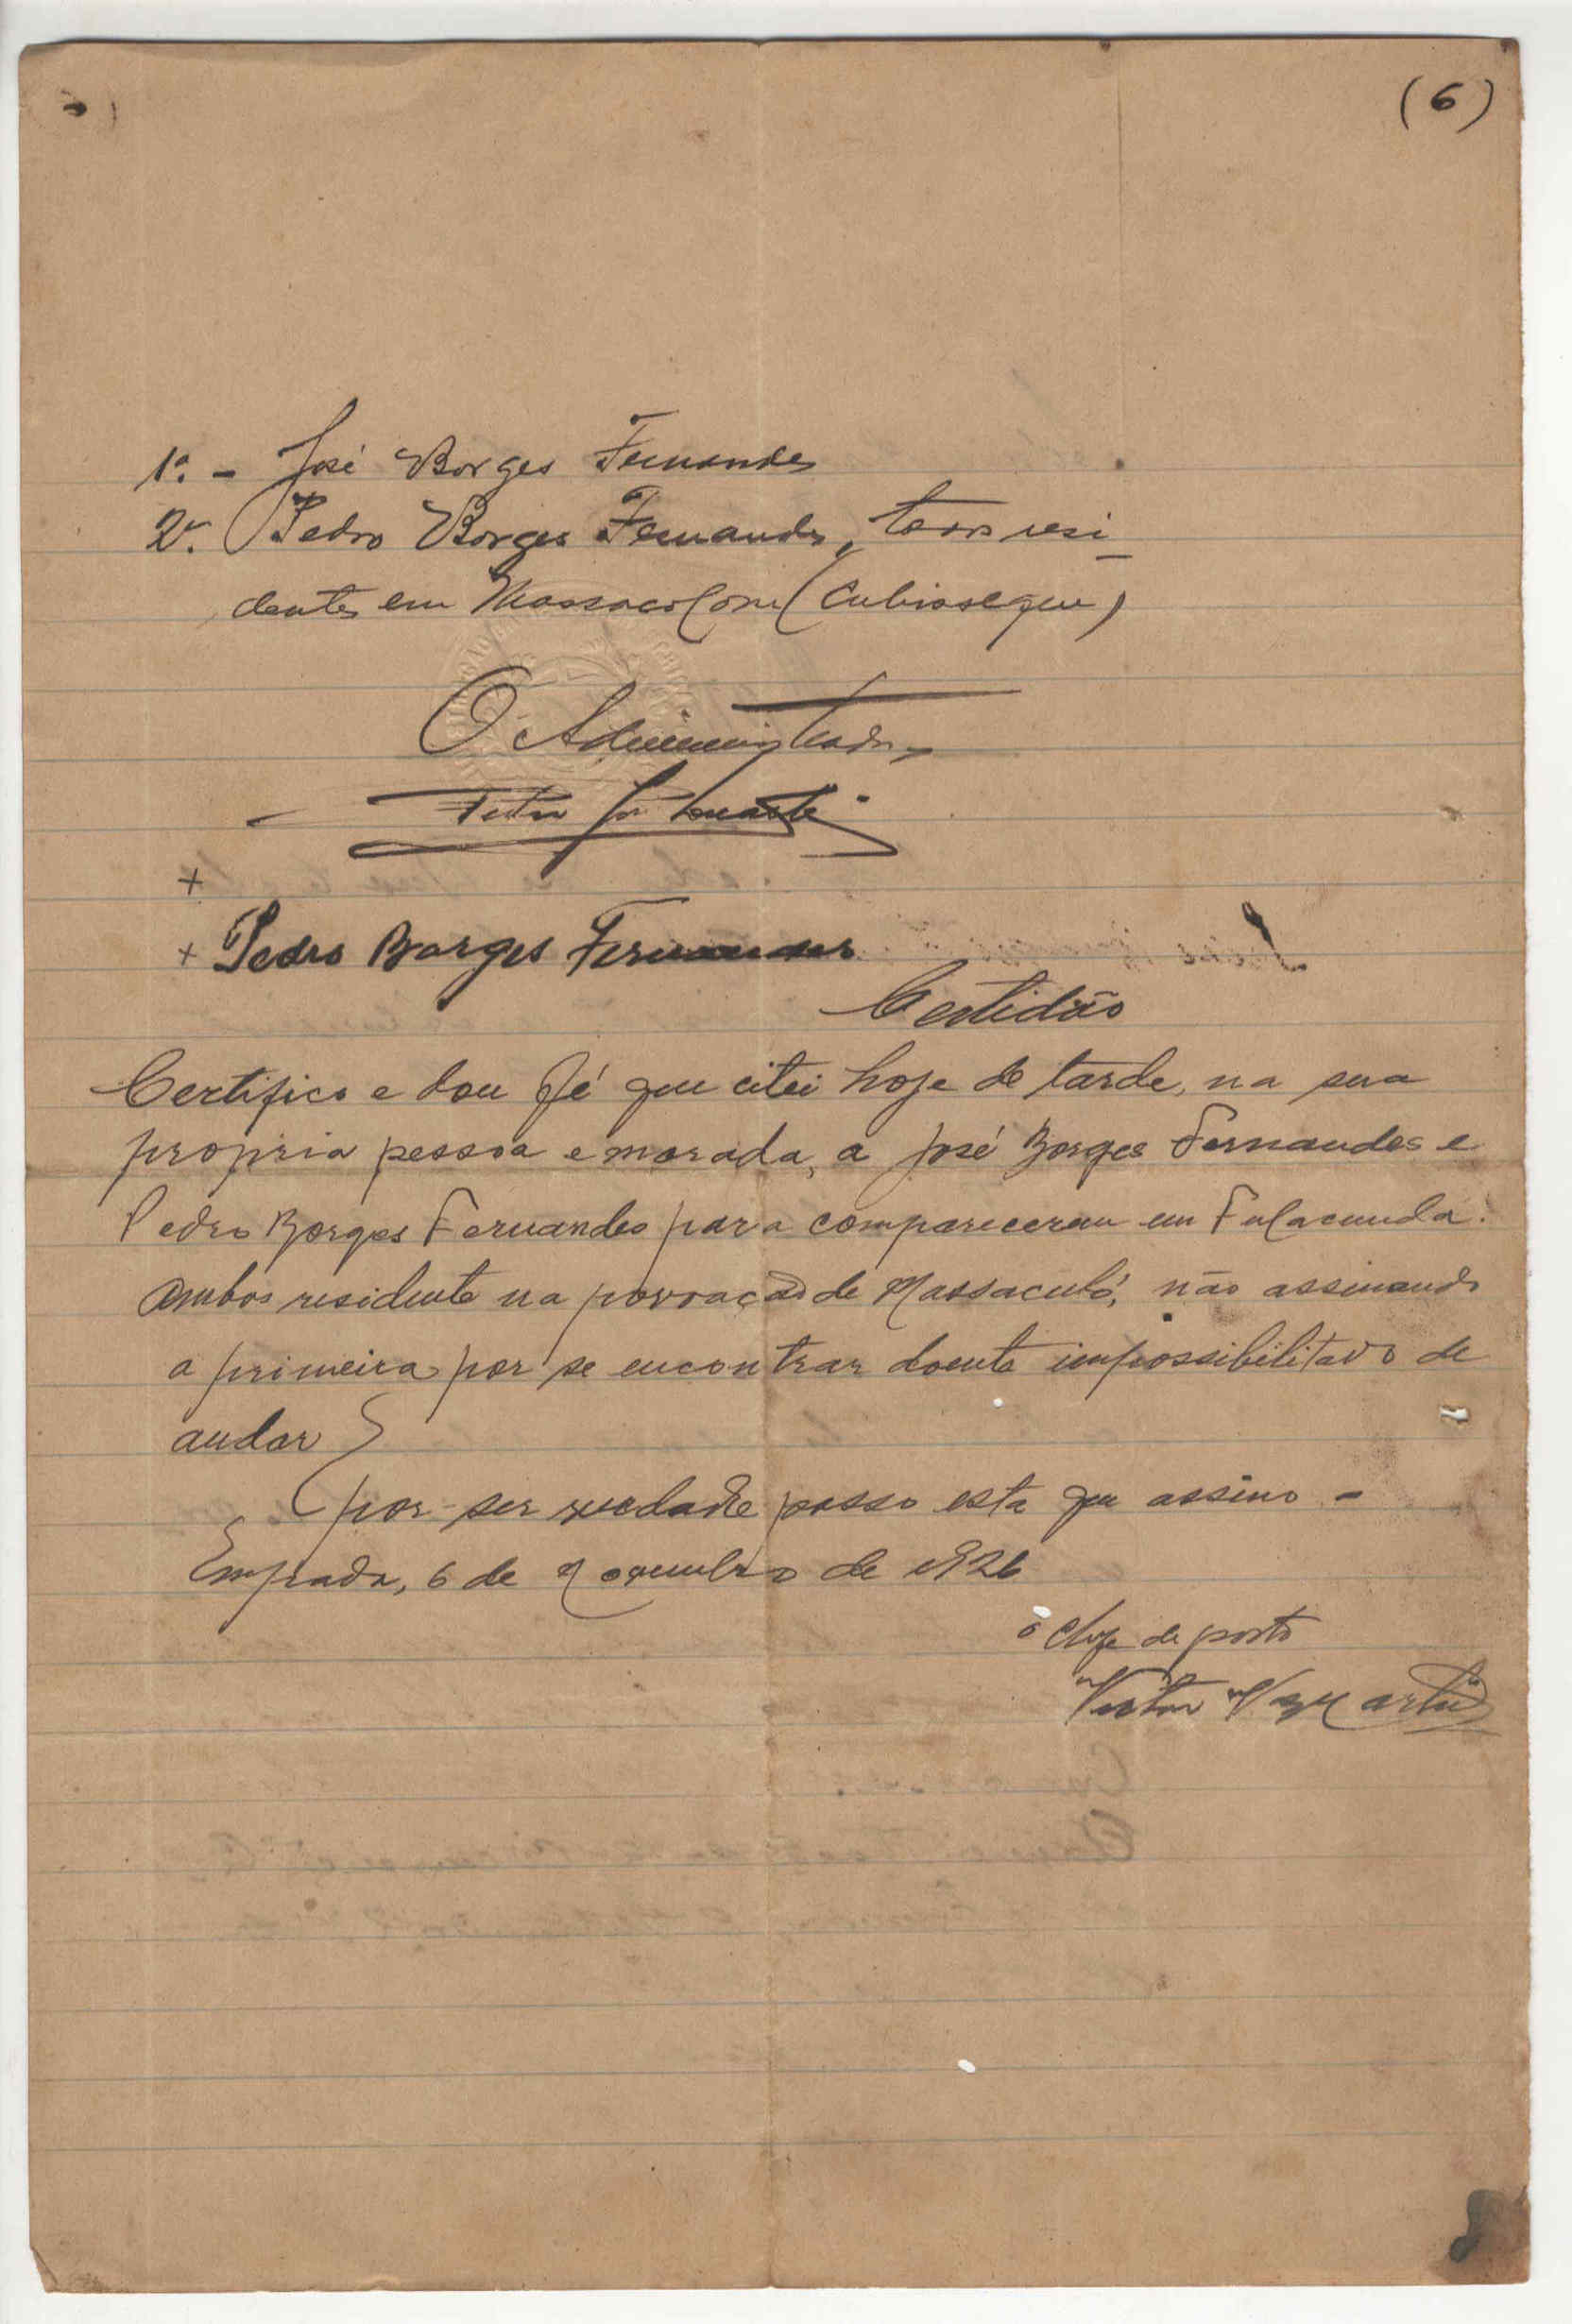 (6)
1º. - José Borges Fernandes
2º. Pedro Borges Fernandes, resi-
dentes em (Cubisseque)
O Administrador
+
+ Pedro Borges Fernandes
Certidão
Certifico e dou fé que citei hoje de tarde, na sua
propria pessoa e morada, a José Borges Fernandes e
Pedro Borges Fernandes para comparecerem em Fulacunda.
Ambos residente na povoação de Massaculó, não assinando
o primeiro por se encontrar doente impossibilitado de
andar
por ser verdade passo esta que assino -
Empada, 6 de Novembro de 1926
o Chefe de posto
Victor Vaz Martins